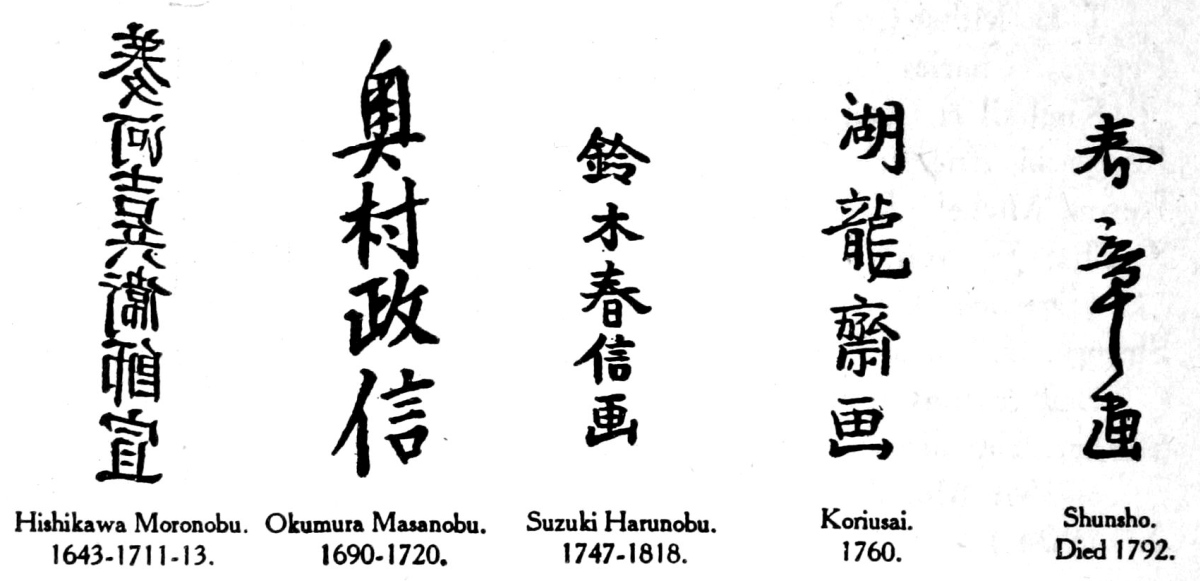 菱河吉兵衛師宣
Hishikawa Moronobu.
1643-1711-13.
奥村政信
Okumura Masanobu.
1690-1720.
鈴木春信画
Suzuki Harunobu.
1747-1818.
湖龍齋画
Koriusai.
1760.
春章画
Shunsho.
Died 1792.